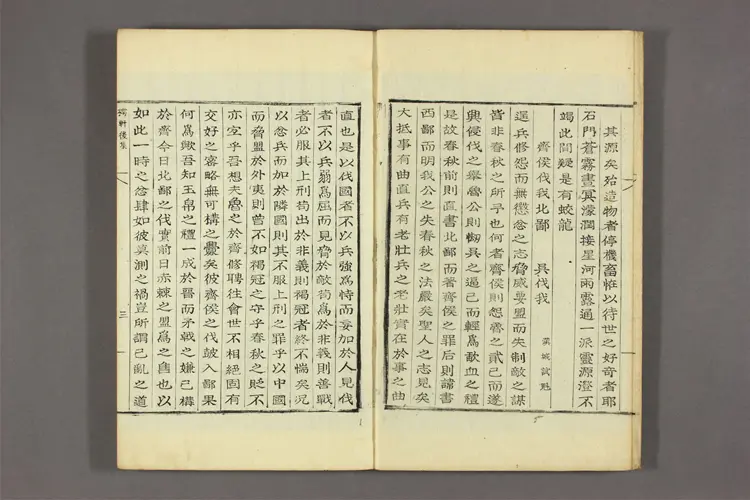 其源矣殆造物者停機畜恠以待世之好奇者耶
石門蒼霧晝冥濛澗接星河雨露通一派靈源澄不
竭此間疑是有蛟龍
齊侯伐我北鄙 吳伐我 試魁
逞兵修怨而無懲忿之志脅威要盟而失制敵之謀
皆非春秋之所予也何者齊侯則怨齊之貳己而遂
興侵伐之擧魯公則㤼吳之逼己而輕爲歃血之禮
是故春秋前則直書北鄙而著齊侯之罪后則諱書
西鄙而明我公之失春秋之法嚴矣聖人之志見矣
大抵事有曲直兵有老壯兵之老壯實在於事之曲
直也是以伐國者不以兵強爲恃而妄加於人見伐
者不以兵弱爲屈而見脅於敵苟爲於非義則善戰
者必服其上刑苟出於非義則褐冠者終不惴矣况
以忿兵而加於隣國則其不服上刑之罪乎以中國
而脅盟於外夷則曾不如褐冠之守乎春秋之貶不
亦宜乎吾想夫魯之於齊修聘往會世不相絕固有
交好之宻略無可構之釁矣彼齊侯之伐鼓入鄙果
何爲歟吾知玉帛之禮一成於晉而矛戟之嫌已構
於齊今日北鄙之伐實前日赤棘之盟爲之自也以
如此一時之忿肆如彼莫測之禍豈所謂已亂之道
軒後集
三